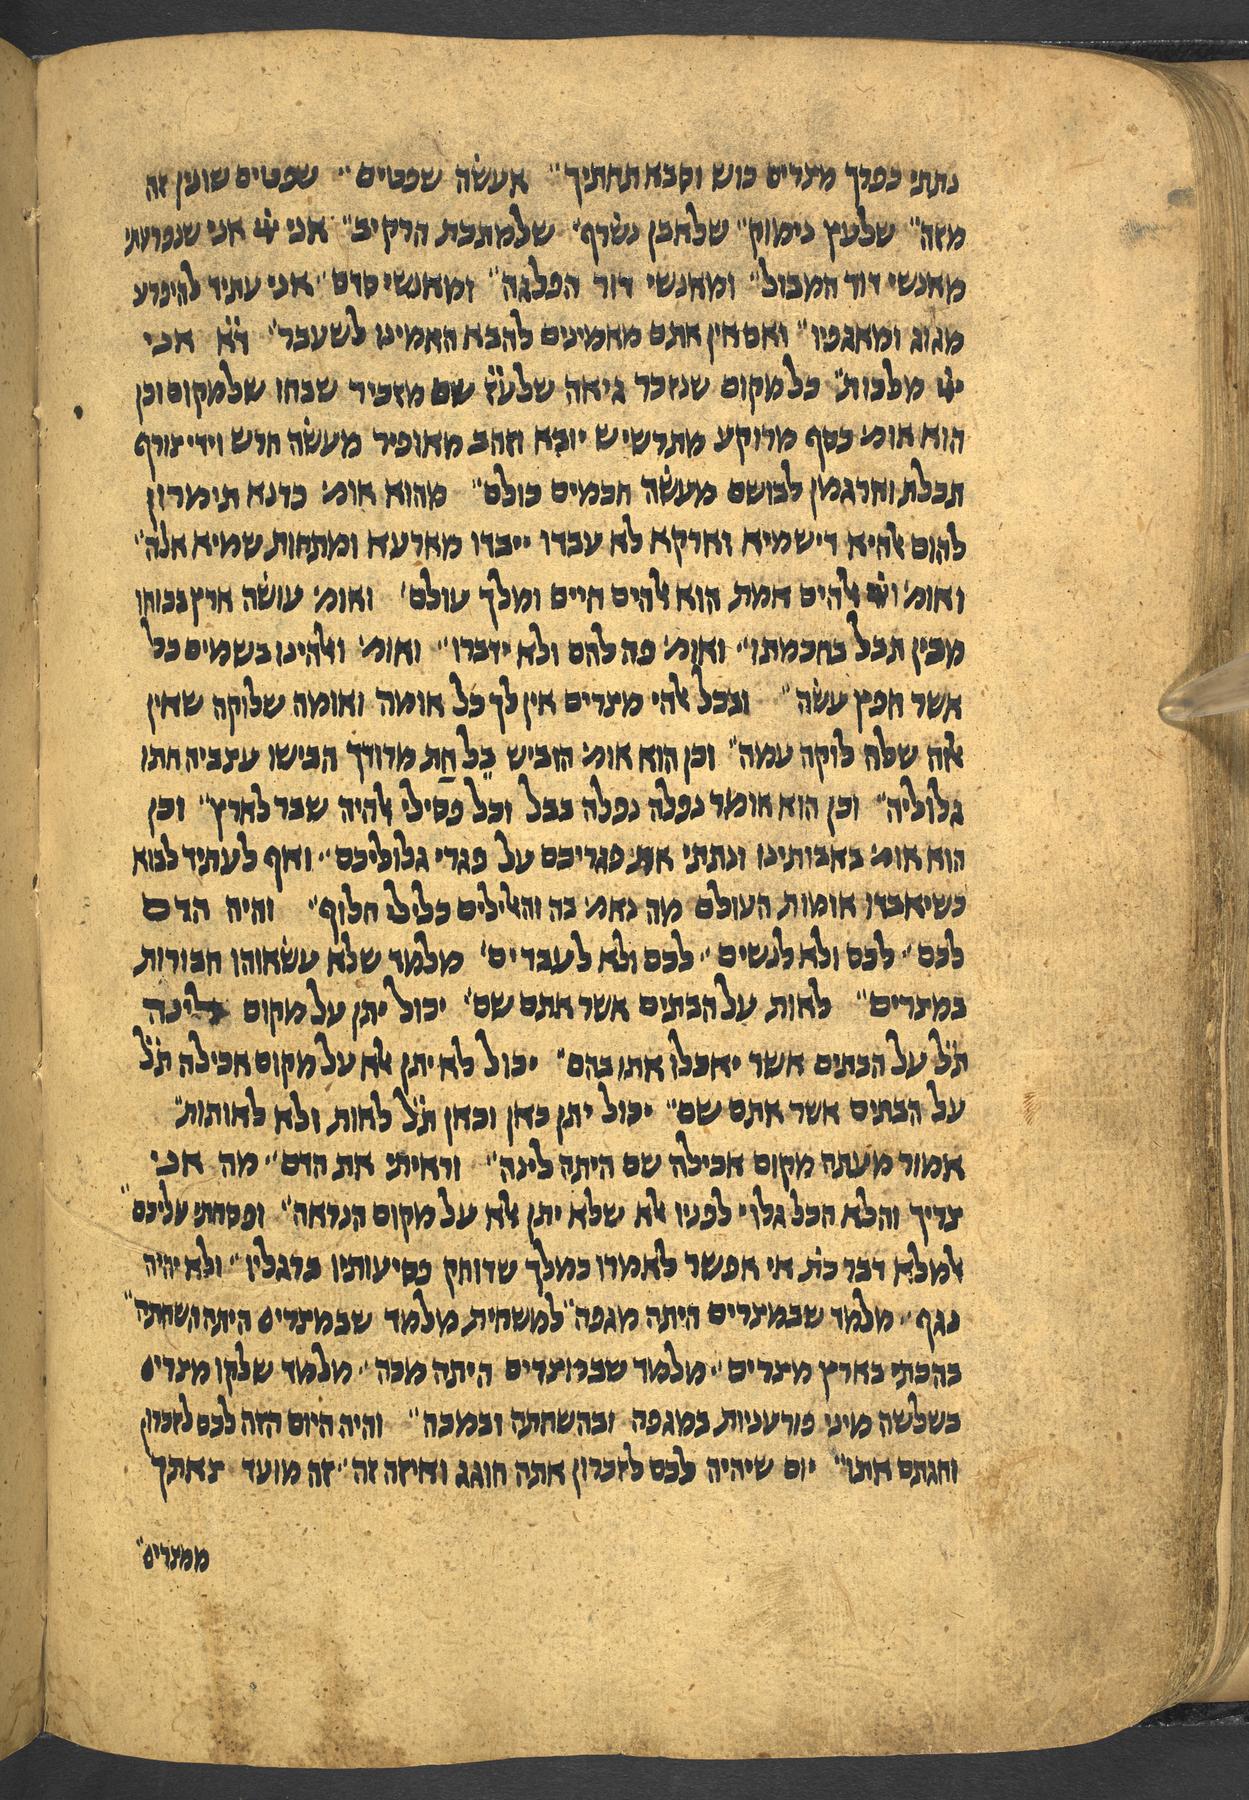 נתתי כפרך מצרים כוש וסבא תחתיך״ אעשה שפטים״ שפטים שונין זה
מזה״ שלעץ נימוק״ שלאבן נשרף״ שלמתכת הרקיב״ אני יי׳ אני שנפרעתי
מאנשי דור המבול״ ומאנשי דור הפלגה״ ומאנשי סדם״ אני עתיד להיפרע
מגוג ומאגפיו״ ואם אין אתם מאמינים להבא האמינו לשעבר״ ד״א אני
יי׳ מלכות״ כל מקום שנזכר גיאה שלע״ז שם מזכיר שבחו שלמקום וכן
הוא אומ׳ כסף מרוקע מתרשיש יובא וזהב מאופיר מעשה חרש וידי צורף
תכלת וארגמן לבושם מעשה חכמים כולם״ מהוא אומ׳ כדנא תימרון
להום אלהיא די שמיא וארקא לא עבדו ייבדו מארעא ומתחות שמיא אלה״
ואומ׳ ויי׳ אלהים אמת הוא אלהים חיים ומלך עולם׳ ואומ׳ עושה ארץ בכוחו
מכין תבל בחכמתו״ ואומ׳ פה להם ולא ידברו״ ואומ׳ ואלהינו בשמים כל
אשר חפץ עשה״ ובכל אלהי מצרים אין לך כל אומה ואומה שלוקה שאין
אלה שלה לוקה עמה״ וכן הוא אומ׳ הוביש בל חת מרודך הבישו עצביה חתו
גלוליה״ וכן הוא אומר נפלה נפלה בבל וכל פסילי אלהיה שבר לארץ״ וכן
הוא אומ׳ באבותינו ונתתי את פגריכם על פגרי גלוליכם״ ואף לעתיד לבוא
כשיאבדו אומות העולם מה נאמ׳ בה והאלילים כליל חלוף״ והיה הדם
לכם״ לכם ולא לנשים״ לכם ולא לעברים׳ מלמד שלא עשאוהו חבורות
במצרים״ לאות על הבתים אשר אתם שם״ יכול יתן על מקום לינה
ת״ל על הבתים אשר יאכלו אתו בהם״ יכול לא יתן אלא על מקום אכילה ת״ל
על הבתים אשר אתם שם״ יכול יתן כאן וכאן ת״ל לאות ולא לאותות״
אמור מעתה מקום אכילה שם היתה לינה״ וראיתי את הדם״ מה אני
צריך והלא הכל גלוי לפניו אלא שלא יתן אלא על מקום הנראה״ ופסחתי עליכם״
אלמלא דבר כת׳ אי אפשר לאמרו כמלך שדוחק פסיעותיו ברגליו״ ולא יהיה
נגף״ מלמד שבמצרים היתה מגפה״ למשחית מלמד שבמצרים היתה השחתה״
בהכתי בארץ מצרים״ מלמד שבמצרים היתה מכה״ מלמד שלקו מצרים
בשלשה מיני פורעניות במגפה ובהשחתה ובמכה״ והיה היום הזה לכם לזכרון
וחגתם אתו״ יום שיהיה לכם לזכרון אתה חוגג ואיזה זה״ זה מועד צאתך
ממצרים״